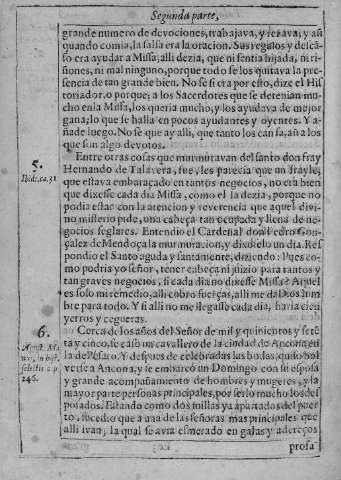 Segunda parte,
grande numero de devociones, trabajava, y rezava, y assi
quando comia, la salsa era la oracion. Sus regalos y descā-
so era ayudar a Missa, alli dezia, que ni sentia hijada, ni ri-
ñones, ni mal ninguno, porque todo se los quitava la pre-
sencia de tan grande bien. No se si era por esto, dize el His
toriador, o porque, a los Sacerdotes que se detenian mu-
cho enla Missa, los queria mucho, y los ayudava de mejor
gana; lo que se halla en pocos ayudantes y oyentes. Y a-
ñade luego. No se que ay alli, que tanto los cansa, aū a los
que son algo devotos.
5.
Entre otras cosas que murmuravan del santo don fray
Hernando de Talavera, fue, les parecia que un frayle,
que estava embaraçado en tantos negocios, no era bien
que dixesse cada dia Missa, como el la dezia, porque no
podia estar con la atencion y reverencia que aquel divi-
no misterio pide, una cabeça tan ocupada y llena de ne-
gocios seglares. Entendio el Cardenal don Pedro Gon-
çalez de Mendoça la murmuracion, y dixoselo un dia. Res
pondio el Santo aguda y santamente, diziendo: Pues co-
mo podria yo señor, tener cabeça ni juizio para tantos y
tan graves negocios, si cada dia no dixesse Missa? Aquel
es solo mi remedio, alli cobro fuerças, alli me da Dios lum
bre para todo. Y si alli no me llegasse cada dia, haria cien
yerros y cegueras.
6.
Cerca de los años del Señor de mil y quinientos y setē
ta y cinco, se caso un cavallero de la ciudad de Ancona en
la de Pisaro. Y despues de celebradas las bodas, quiso bol
ver a Ancona, y se embarcò un Domingo con su esposa
y grande acompañamiento de hombres y mugeres, y la
mayor parte personas principales, por serlo mucho los des
posados. Estando como dos millas ya apartados del puer
to, sucedio que a una de las señoras mas principales que
alli ivan, la qual se avia esmerado en galas y adereços
246.
profa